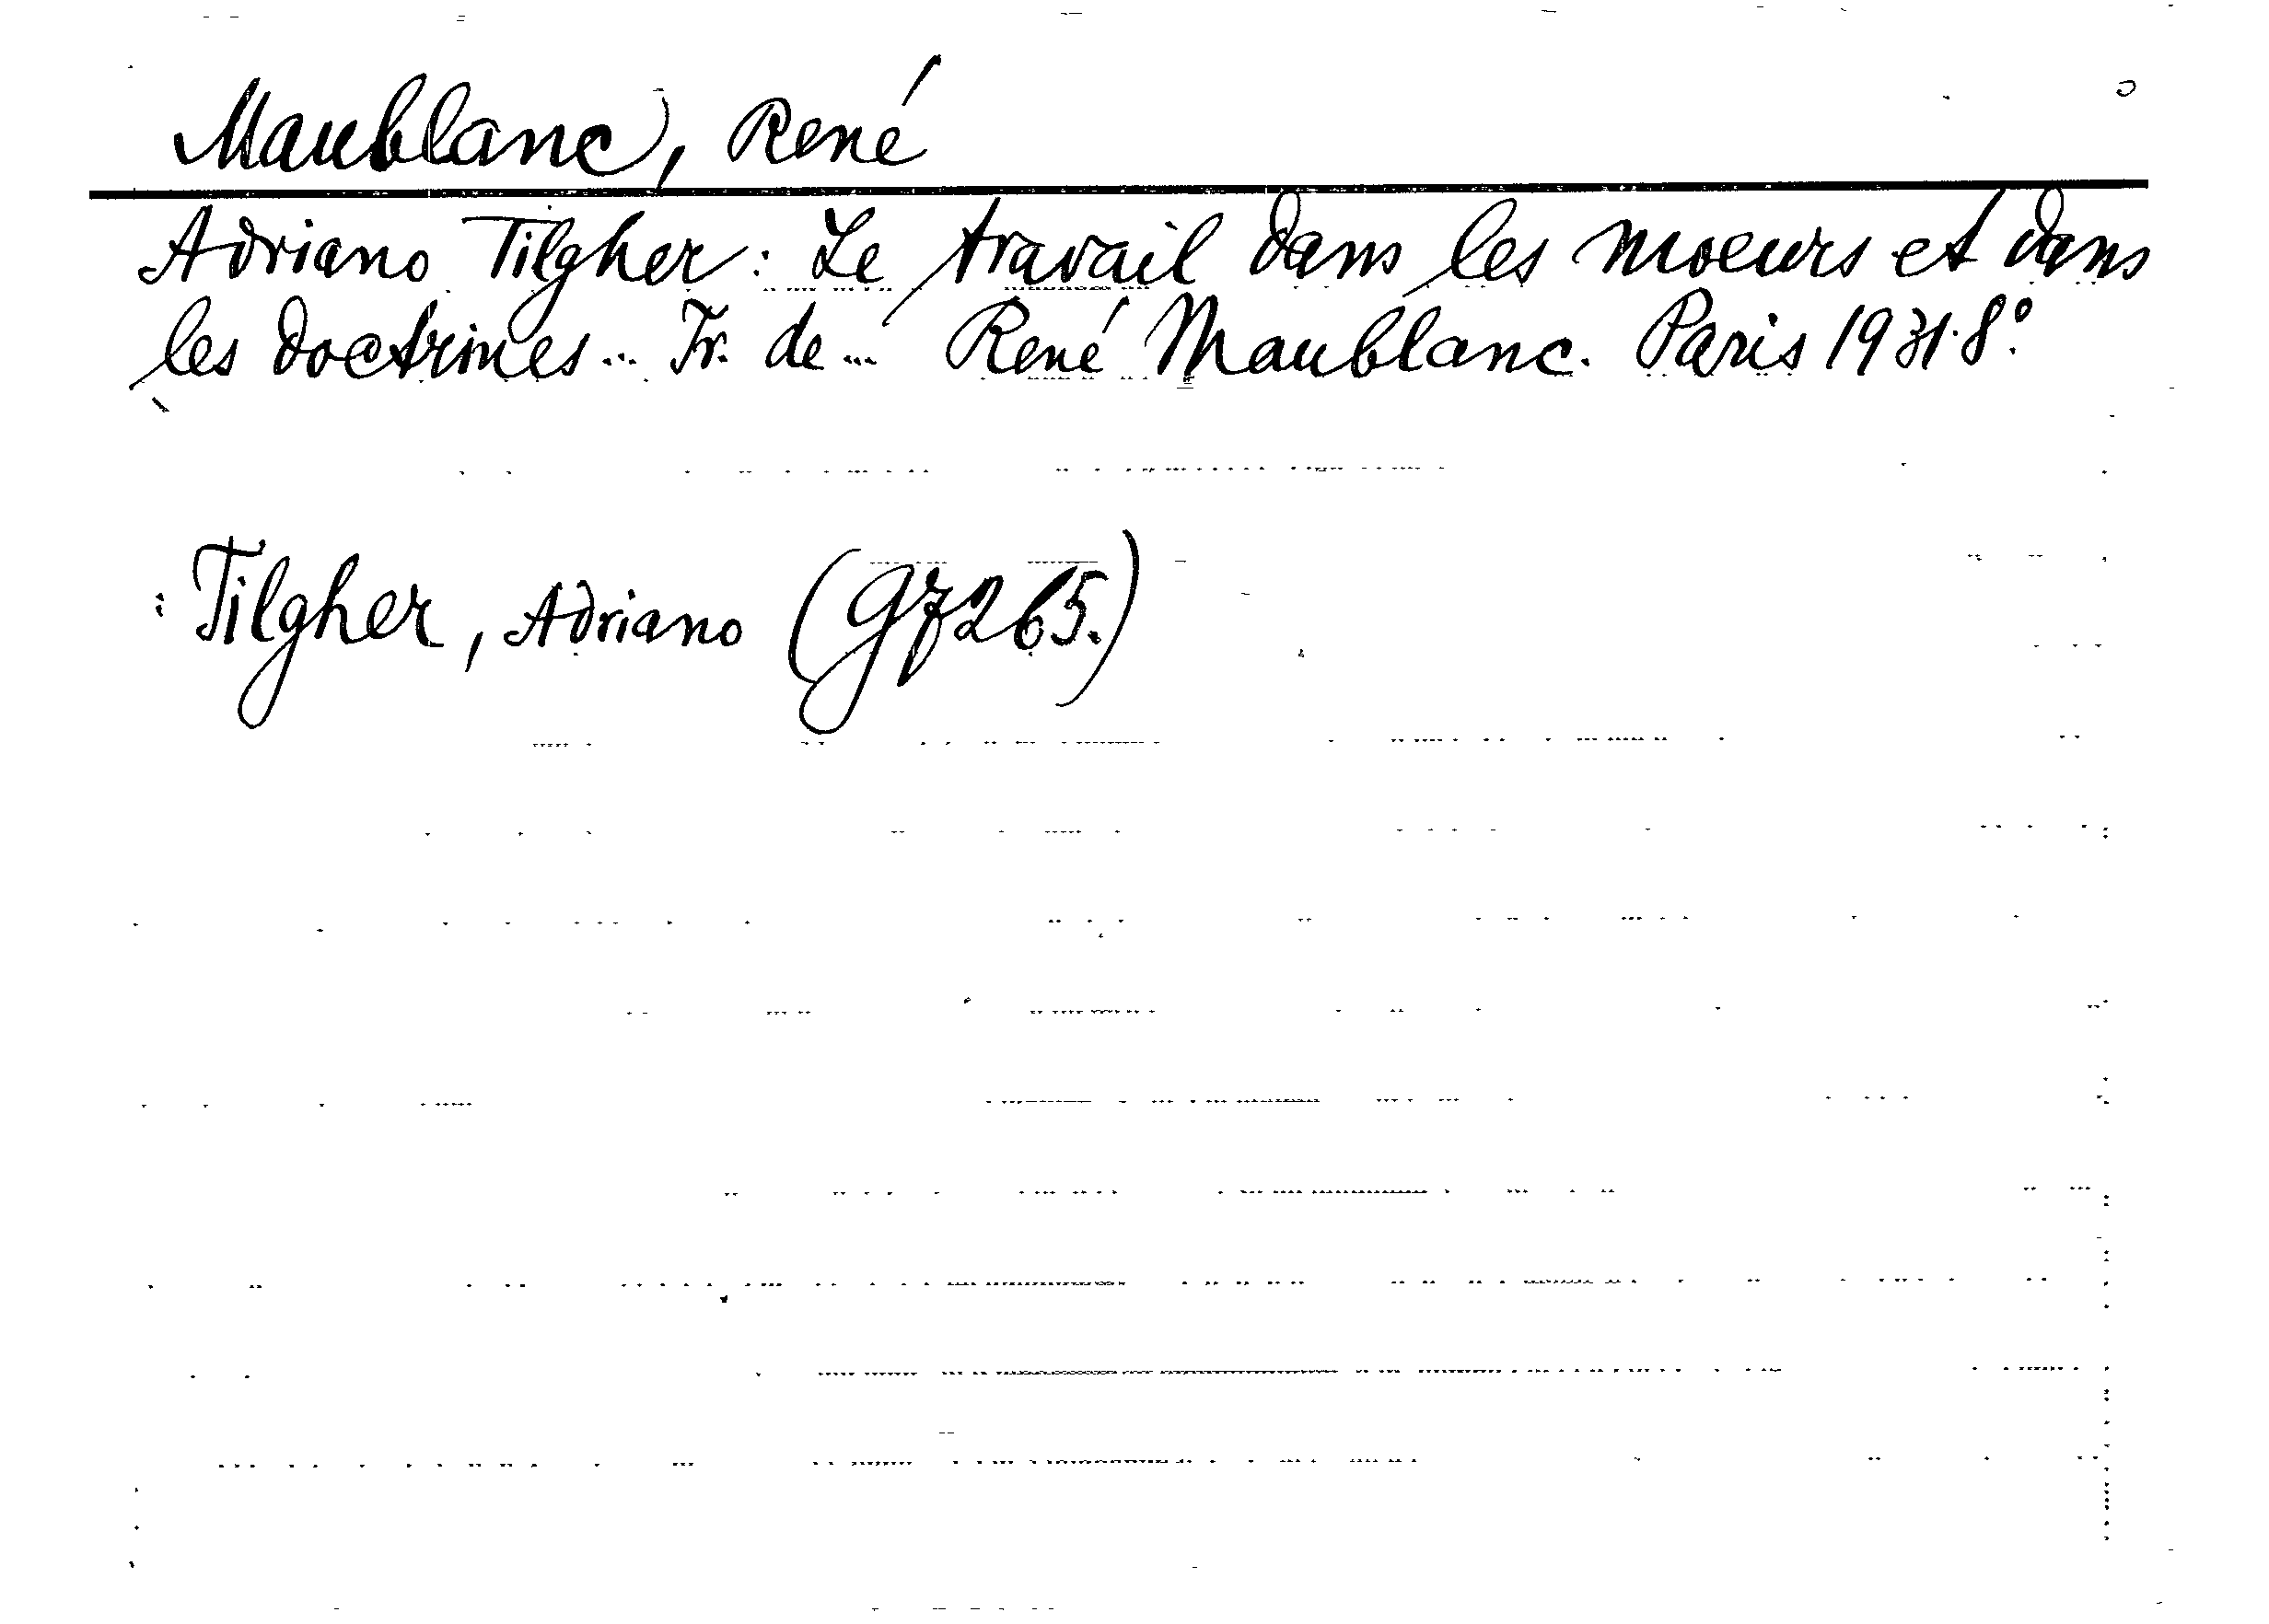 Maublanc, René
Adriano Tilgher: Le travail dans les moeurs et dans
les doctrines... Tr. de... René Maublanc. Paris 1931. 8°.
: Tilgher, Adriano (97265.)